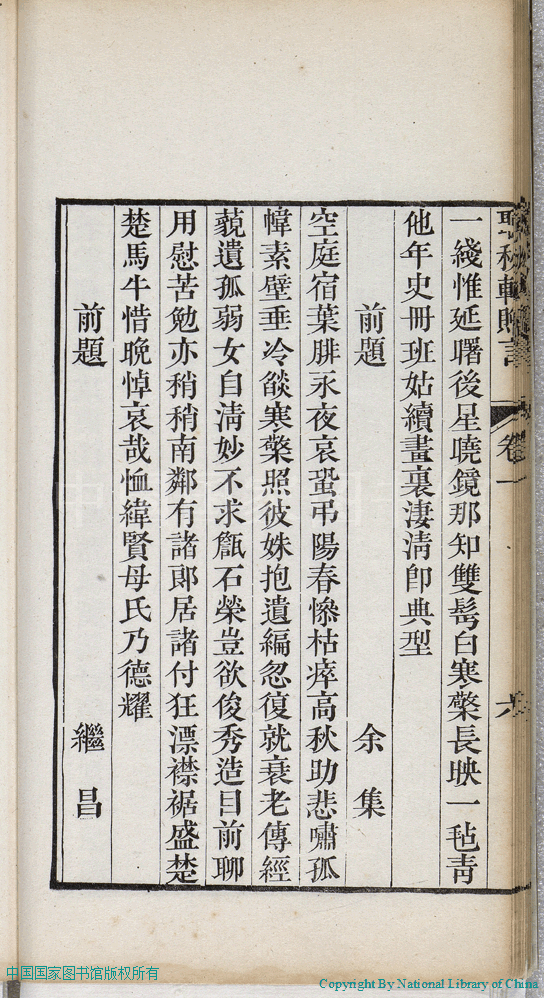 聽秋軒贈言 卷一 六
一綫惟延曙後星曉鏡那知雙髩白寒檠長映一毡青
他年史冊班姑續畫裏淒淸卽典型
前題 余集
空庭宿葉腓永夜哀蛩弔陽春慘枯瘁高秋助悲嘯孤
幃素壁垂冷燄寒檠照彼姝抱遺編忽復就衰老傳經
藐遺孤弱女自淸妙不求甔石榮豈欲俊秀造目前聊
用慰苦勉亦稍稍南鄰有諸郞居諸付狂漂襟裾盛楚
楚馬牛惜晚悼哀哉恤緯賢母氏乃德耀
前題 繼昌
中国国家图书馆版权所有
Copyright By National Library of China